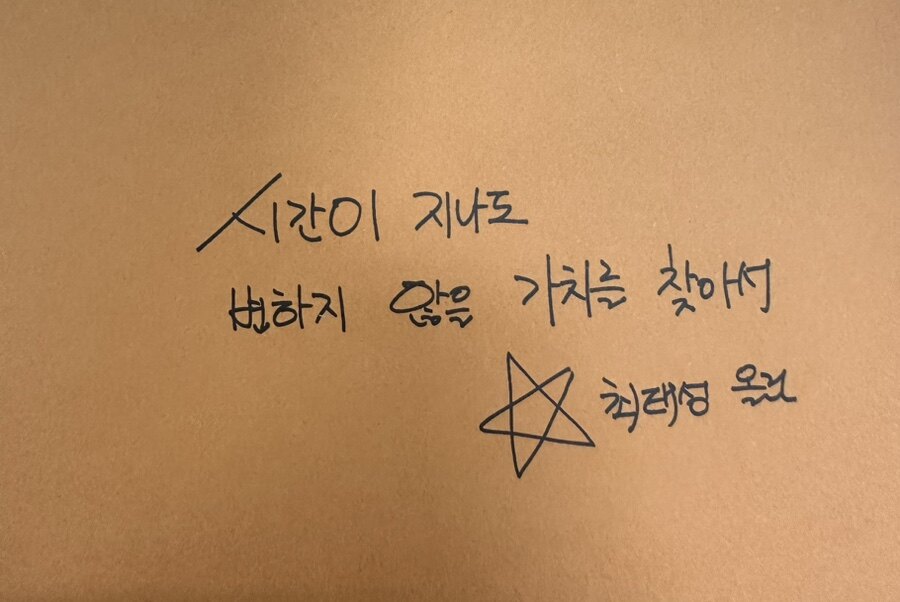 시간이 지나도
변하지 않을 가치를 찾아서
최태성 올림